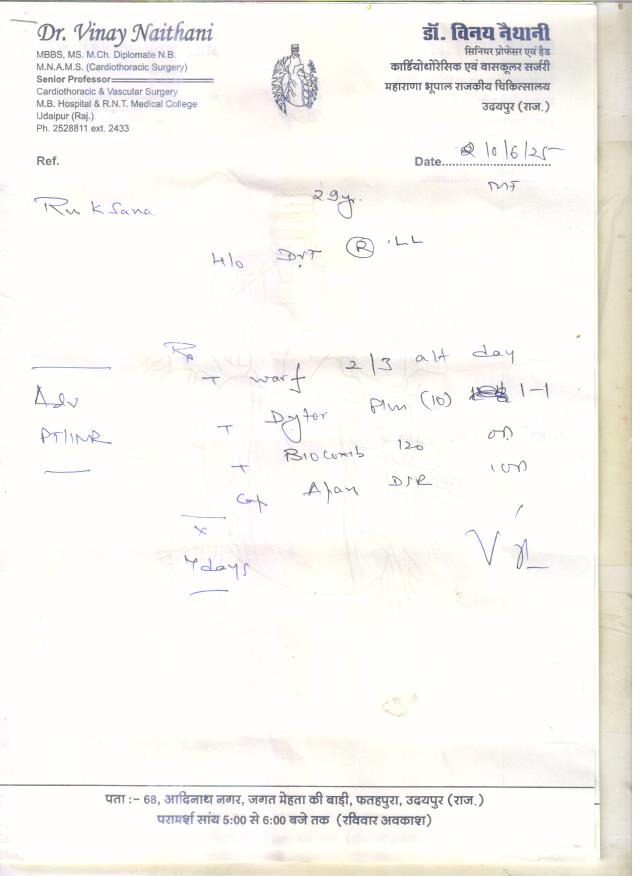 Dr. Vinay Naithani
MBBS, MS. M.Ch. Diplomate N.B.
M.N.A.M.S. (Cardiothoracic Surgery)
Senior Professor
Cardiothoracic & Vascular Surgery
M.B. Hospital & R.N.T. Medical College
Udaipur (Raj.)
Ph. 2528811 ext. 2433
डॉ. विनय नैथानी
सिनियर प्रोफेसर एवं हैड
कार्डियोथोरेसिक एवं वासकूलर सर्जरी
महाराणा भूपाल राजकीय चिकित्सालय
उदयपुर (राज.)
Ref.
Date 10/6/25
Ruksana 29yr.
H/o DVT (R) LL
Rx
T warf 2/3 alt day
Adv
T Dytor Plus (10) 1-1
PT/INR
T Biocomb 120 OD
Cap DSR 1OD
x
7 days
पता :– 68, आदिनाथ नगर, जगत मेहता की बाड़ी, फतहपुरा, उदयपुर (राज.)
परामर्श सांय 5:00 से 6:00 बजे तक (रविवार अवकाश)